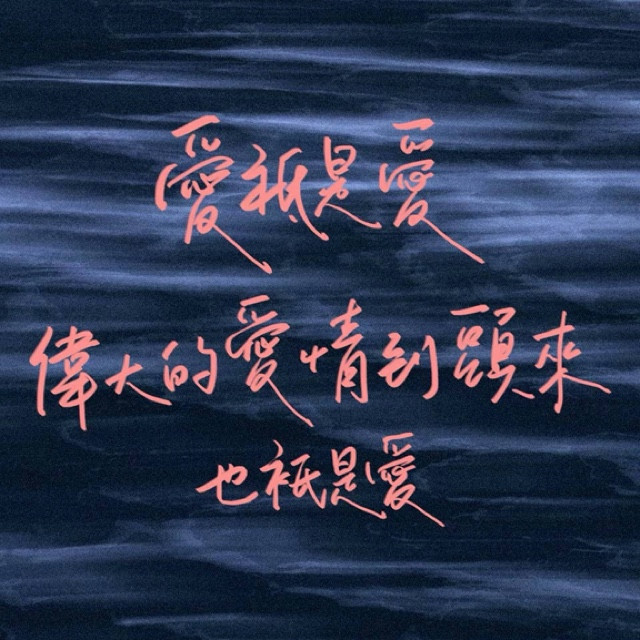 愛祇是愛
偉大的愛情到頭來
也祇是愛